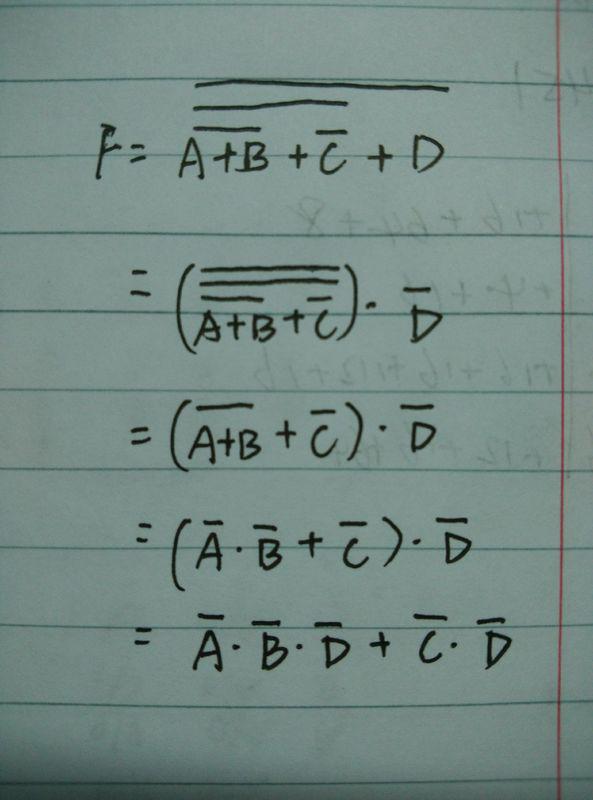 F = \overline{\overline{\overline{A+B} + \overline{C}} + D}
= (\overline{\overline{\overline{A+B} + \overline{C}}}) · \overline{D}
= (\overline{A+B} + \overline{C}) · \overline{D}
= (\overline{A} · \overline{B} + \overline{C}) · \overline{D}
= \overline{A} · \overline{B} · \overline{D} + \overline{C} · \overline{D}